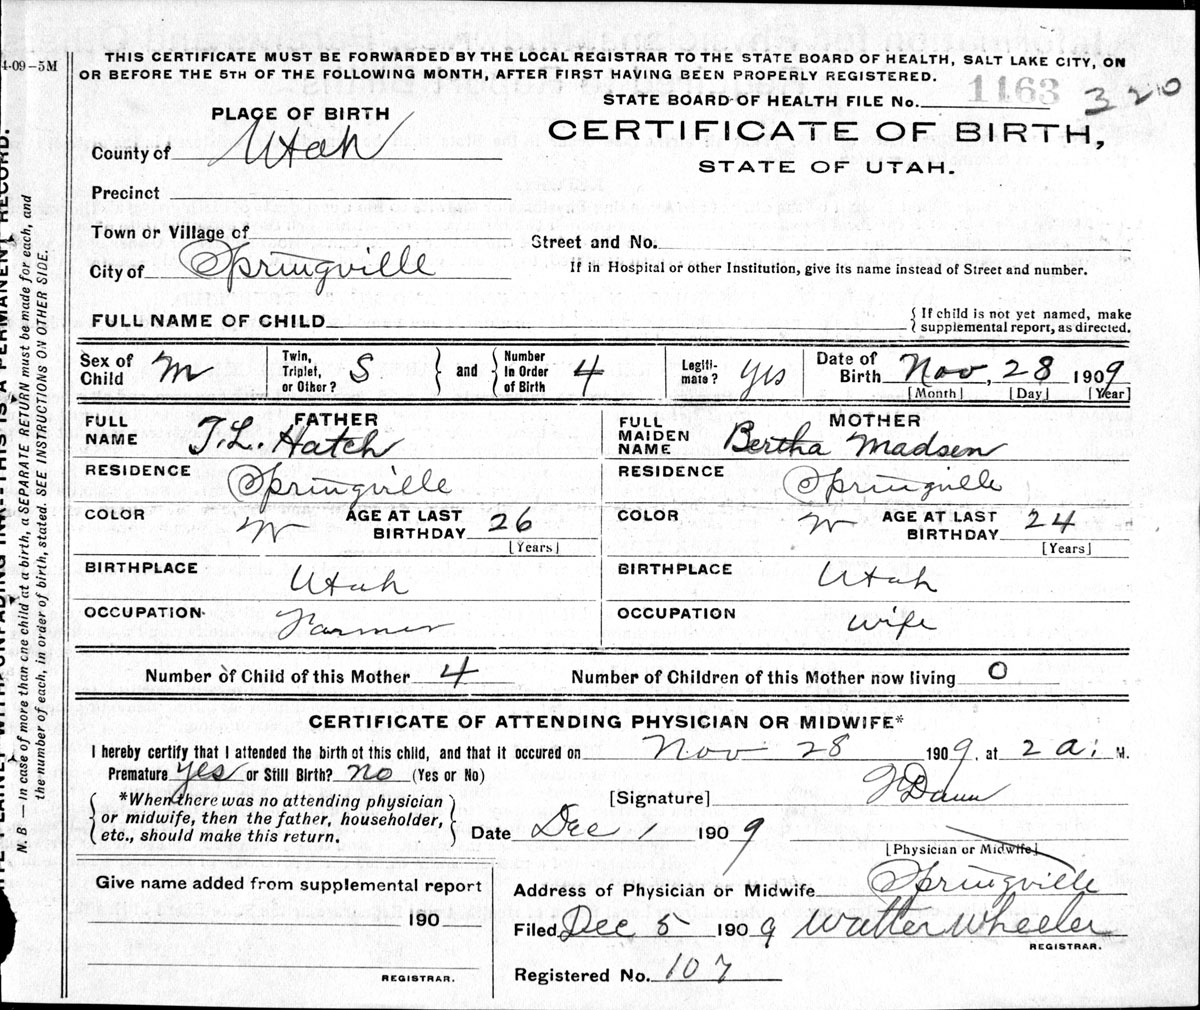 4-09-5M
THIS CERTIFICATE MUST BE FORWARDED BY THE LOCAL REGISTRAR TO THE STATE BOARD OF HEALTH, SALT LAKE CITY, ON
OR BEFORE THE 5TH OF THE FOLLOWING MONTH, AFTER FIRST HAVING BEEN PROPERLY REGISTERED.
STATE BOARD OF HEALTH FILE No. 1163 320
PLACE OF BIRTH
CERTIFICATE OF BIRTH,
STATE OF UTAH.
County of Utah
Precinct
Town or Village of
Street and No.
City of Springville
If in Hospital or other Institution, give its name instead of Street and number.
FULL NAME OF CHILD
{ If child is not yet named, make
supplemental report, as directed.
Sex of Child M
Twin, Triplet, or Other? S } and { Number in Order of Birth 4
Legiti-mate? yes
Date of Birth Nov, 28 1909
[Month] [Day] [Year]
FATHER
FULL NAME T. L. Hatch
MOTHER
FULL MAIDEN NAME Bertha Madsen
RESIDENCE Springville
RESIDENCE Springville
COLOR W AGE AT LAST BIRTHDAY 26
[Years]
COLOR W AGE AT LAST BIRTHDAY 24
[Years]
BIRTHPLACE Utah
BIRTHPLACE Utah
OCCUPATION Farmer
OCCUPATION wife
Number of Child of this Mother 4 Number of Children of this Mother now living 0
CERTIFICATE OF ATTENDING PHYSICIAN OR MIDWIFE*
I hereby certify that I attended the birth of this child, and that it occured on Nov 28 1909, at 2 a. M.
Premature yes or Still Birth? no (Yes or No)
{ *When there was no attending physician
or midwife, then the father, householder,
etc., should make this return. }
[Signature]
Date Dec 1 1909
[Physician or Midwife]
Give name added from supplemental report
190
REGISTRAR.
Address of Physician or Midwife Springville
Filed Dec 5 1909 Walter Wheeler
REGISTRAR.
Registered No. 107
WITH UNFADING INK-THIS IS A PERMANENT RECORD.
N. B — In case of more than one child at a birth, a SEPARATE RETURN must be made for each, and
the number of each, in order of birth, stated. SEE INSTRUCTIONS ON OTHER SIDE.